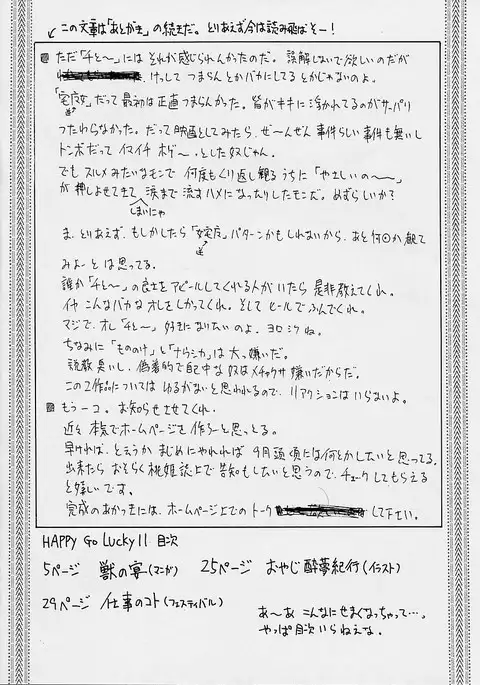 この文章は「あとがき」の続きだ。とりあえず今は読み飛ばそー!
ただ「千と〜」には それが感じられんかったのだ。誤解しないで欲しいのだが
けっして つまらん とか バカにしてる とかじゃないのよ。
「宅急女」だって 最初は正直つまらんかった。皆がキキに 浮かれてるのが サーパリ
つたわらなかった。だって 映画としてみたら、ぜ〜んぜん 事件らしい事件も無いし
トンボだって イマイチ ボゲ〜、とした奴じゃん。
でも スルメ みたいなモンで 何度もくり返し観る うちに「やさしいの〜〜」
が 押しよせてきて 涙まで 流すハメになったりしたモンだ。めずらしいか?
しまいにゃ
ま、とりえあず、もしかしたら「宅急」パターンかもしれないから、あと何回か観て
みよーとは思ってる。
誰か「千と〜」の良さを アピールしてくれる人がいたら 是非教えてくれ。
イヤ こんなバカな オレを しかってくれ。そして ヒールで ふんでくれ。
マジで、オレ「千と〜」好きになりたいのよ、ヨロシクね。
ちなみに「もののけ」と「ナウシカ」は 大、嫌いだ。
説教臭いし、偽善的で自己中な奴は メチャクサ 嫌いだからだ。
この2作品については ゆるがないと思われるので、リアクションは いらないよ。
もう一コ。お知らせさせてくれ。
近々 本気でホームページを 作ろーと思っとる。
早ければ、とゆうか まじめにやれれば 9月頭頃には何とかしたいと 思ってる。
出来たら おそらく 桃姫誌上で 告知もしたいと思うので、チェックしてもらえる
と嬉しいです。
完成のあかつきには、ホームページ上でのトーク して下さい。
HAPPY Go Lucky 11 目次
5ページ 獣の宴(マンガ) 25ページ おやじ酔夢紀行(イラスト)
29ページ 仕事のコト(フェスティバル)
あ〜あ こんなに せまくなっちゃって…。
やっぱ 目次 いらねえな。